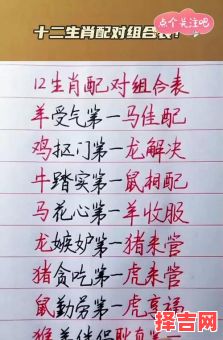 点个关注吧
十二生肖配对组合表!
12生肖配对组合表
羊受气第一马佳配
鸡抠门第一龙解决
牛踏实第一鼠相配
马花心第一羊收服
龙嫉妒第一猪来营
猪贪吃第一虎来营
鼠勤劳第一虎享福
择吉网
zejiwang.com